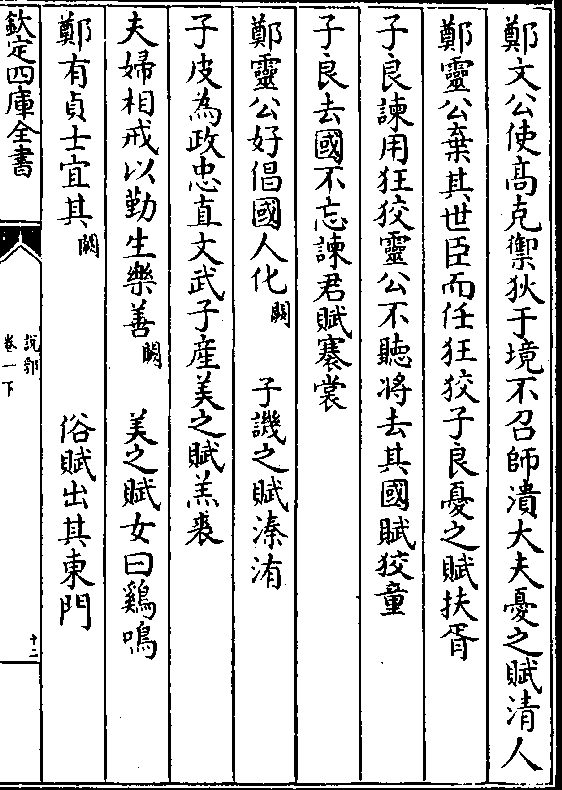 鄭文公使髙克禦狄于境不召師潰大夫憂之賦清人
鄭靈公棄其世臣而任狂狡子良憂之賦扶胥
子良諫用狂狡靈公不聽將去其國賦狡童
子良去國不忘諫君賦褰裳
鄭靈公好倡國人化闕 子譏之賦溱洧
子皮為政忠直文武子産美之賦羔裘
夫婦相戒以勤生樂善闕 美之賦女曰鷄鳴
鄭有貞士宜其闕 俗賦出其東門
欽定四庫全書
説郛
卷一下
十二